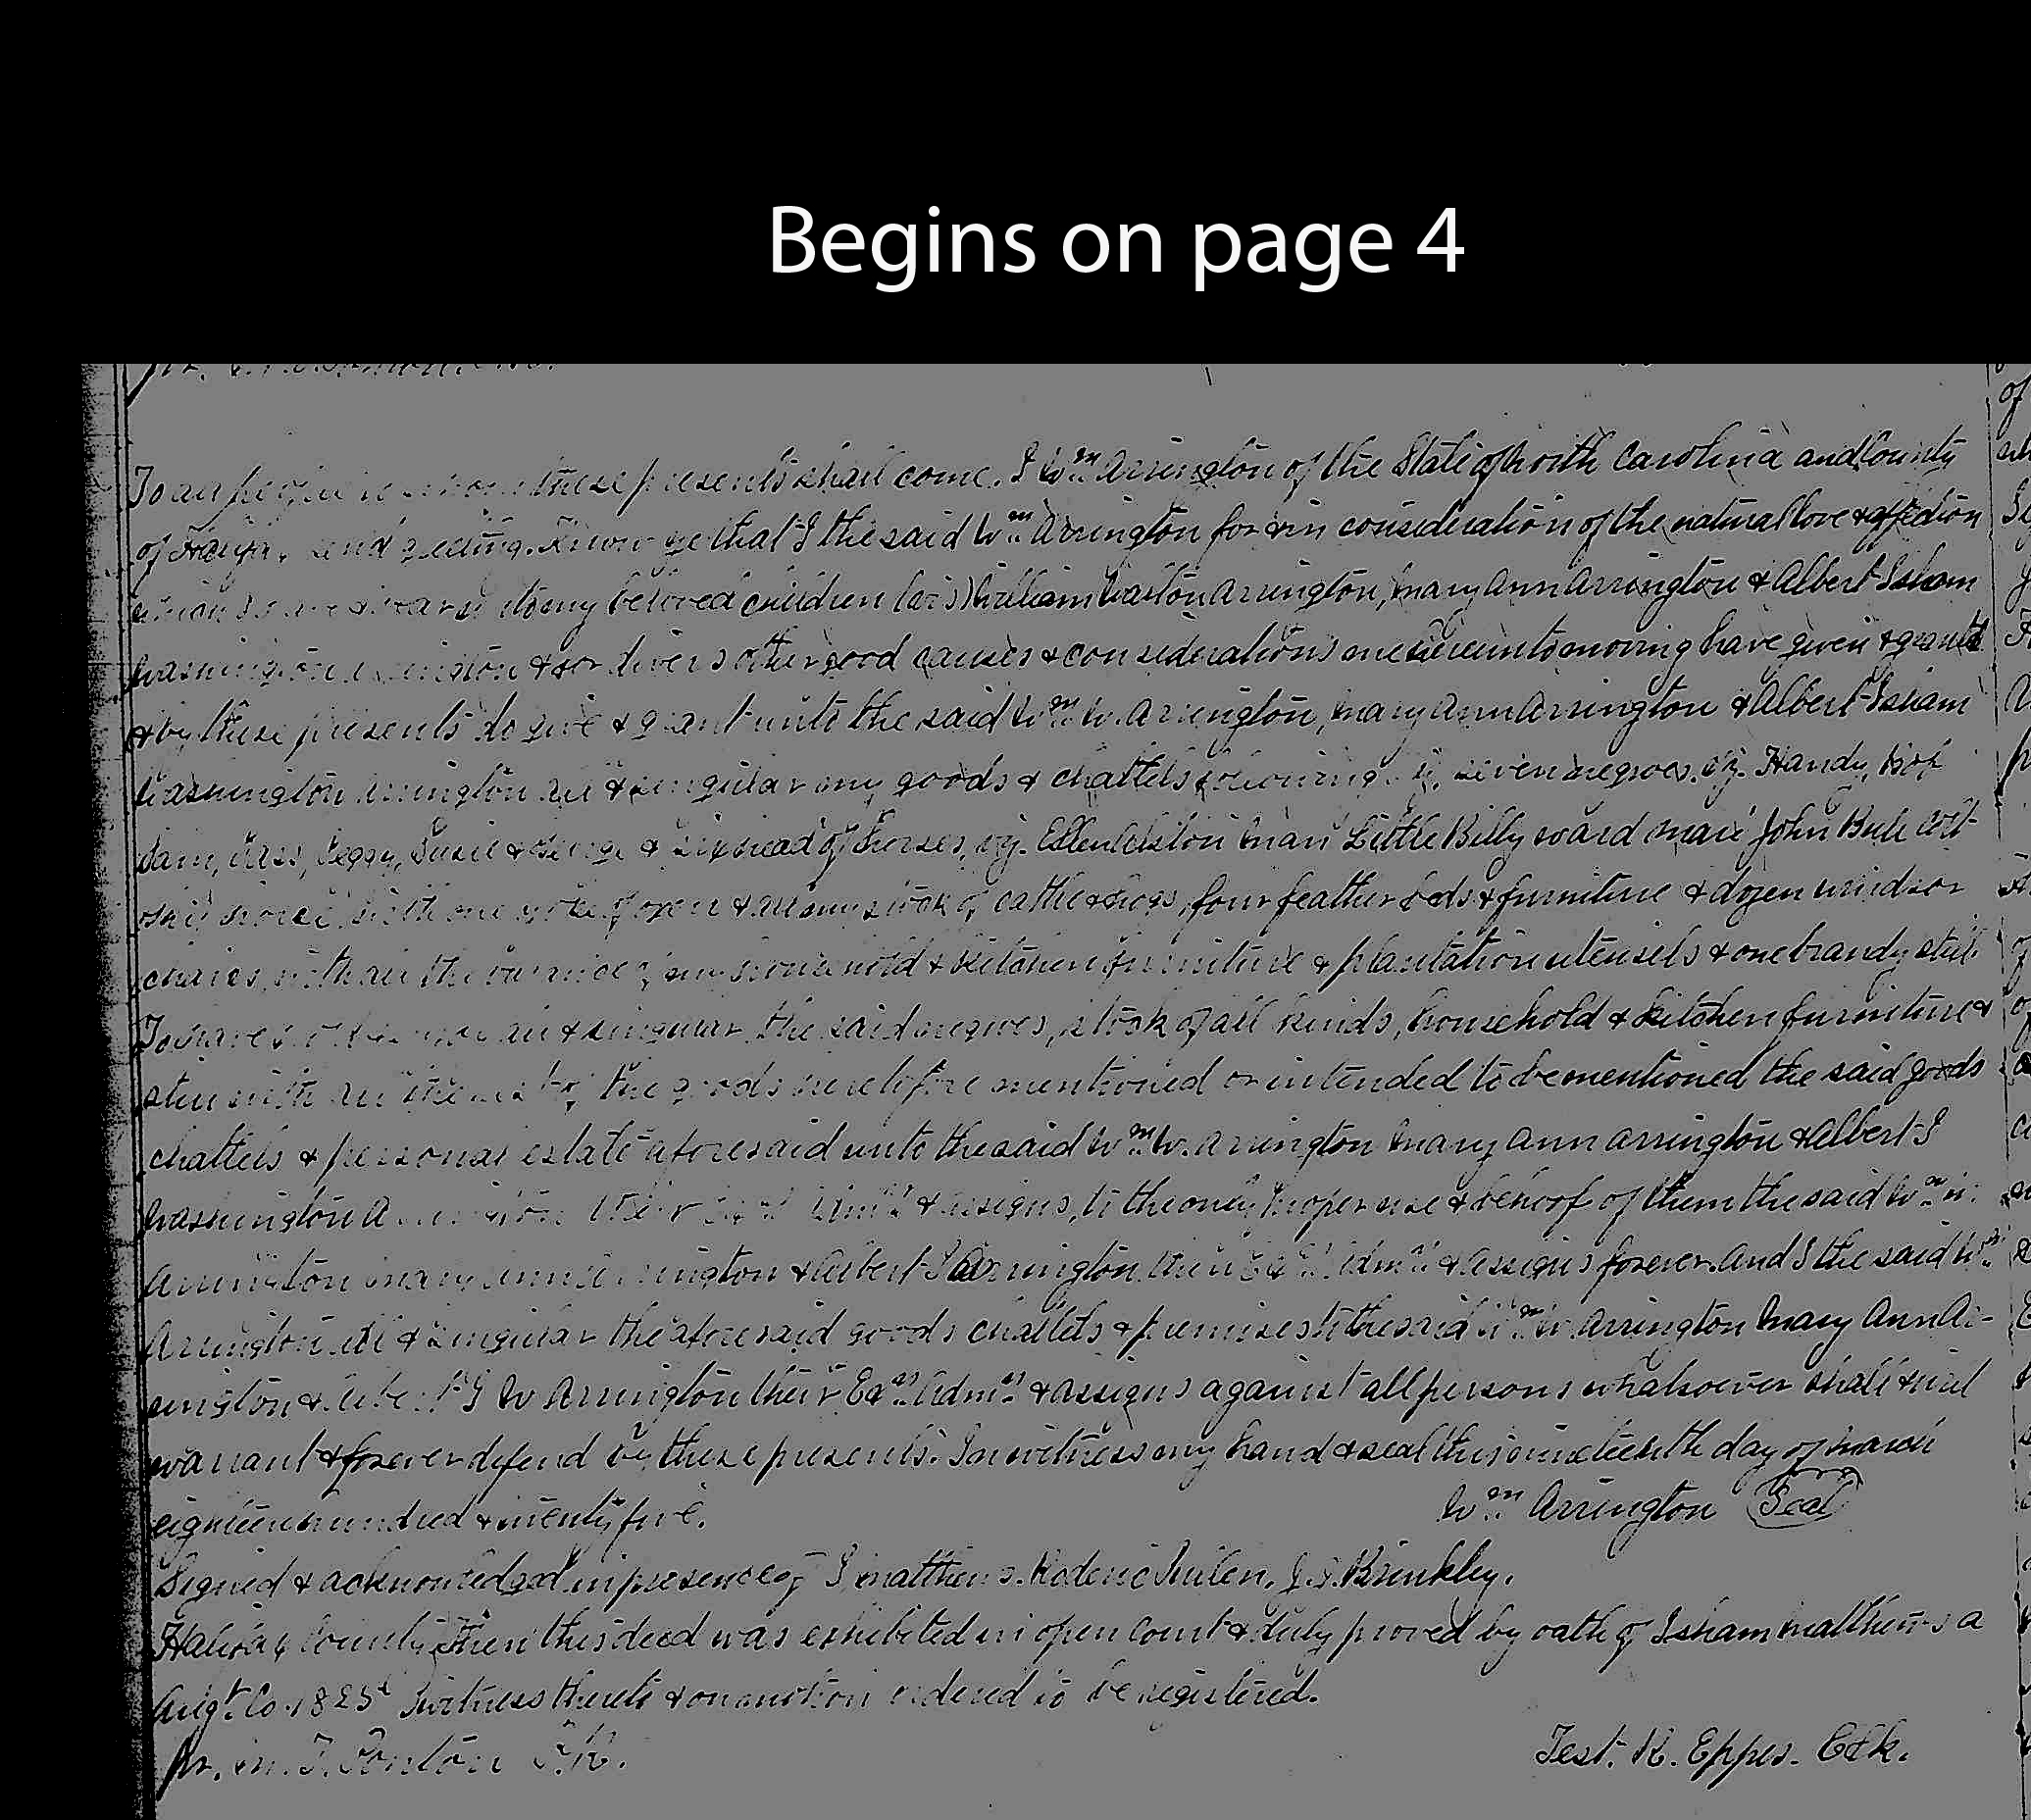 Begins on page 4
these presents shall come. I Wm. Arrington of the State of North Carolina and County
of Halifax, send greeting. Know ye that I the said Wm. Arrington for & in consideration of the natural love & affection
to my beloved children (viz) William Waston Arrington, Mary Ann Arrington & Albert Isham
Washington Arrington & for divers other good causes & considerations me hereunto moving have given & granted
& by these presents do give & grant unto the said Wm. W. Arrington, Mary Ann Arrington & Albert Isham
Washington Arrington all & singular my goods & chattels seven negroes, viz. Handy,
Sam, Peggy, Susie & & six head of horses, viz. Ellen Alston Little Billy ward mare John Bull
horse, with one yoke of oxen & all my stock of cattle & hogs, four feather beds & furniture & dozen windsor
chaires, with all the household & kitchen furniture & plantation utensils & one brandy still.
To have all & singular the said negroes, stock of all kinds, household & kitchen furniture &
still with all the goods heretofore mentioned or intended to be mentioned the said goods
chattels & personal estate aforesaid unto the said Wm. W. Arrington Mary Ann Arrington & Albert I
Washington Arrington their & assigns, to the only proper use & behoof of them the said Wm. W.
Arrington Mary Ann Arrington & Albert I Arrington their Exrs. Admrs. & assigns forever. And I the said Wm.
Arrington all & singular the aforesaid goods chattels & premises to the said Wm. W. Arrington Mary Ann Ar-
rington & Albert I W Arrington their Exrs. Admrs. & assigns against all persons whatsoever shall & will
warrant & forever defend by these presents. In witness my hand & seal this nineteenth day of March
eighteen hundred & twenty five. Wm. Arrington Seal
Signed & acknowledged in presence of I Matthews. Roderic J. Brinkley.
Halifax County Then this deed was exhibited in open Court & duly proved by oath of Isham Matthews a
Augt. Co. 1825 witness thereto & on motion ordered to be registered.
pr. M. T. Ponton P.R. Test. R. Eppes. Clk.